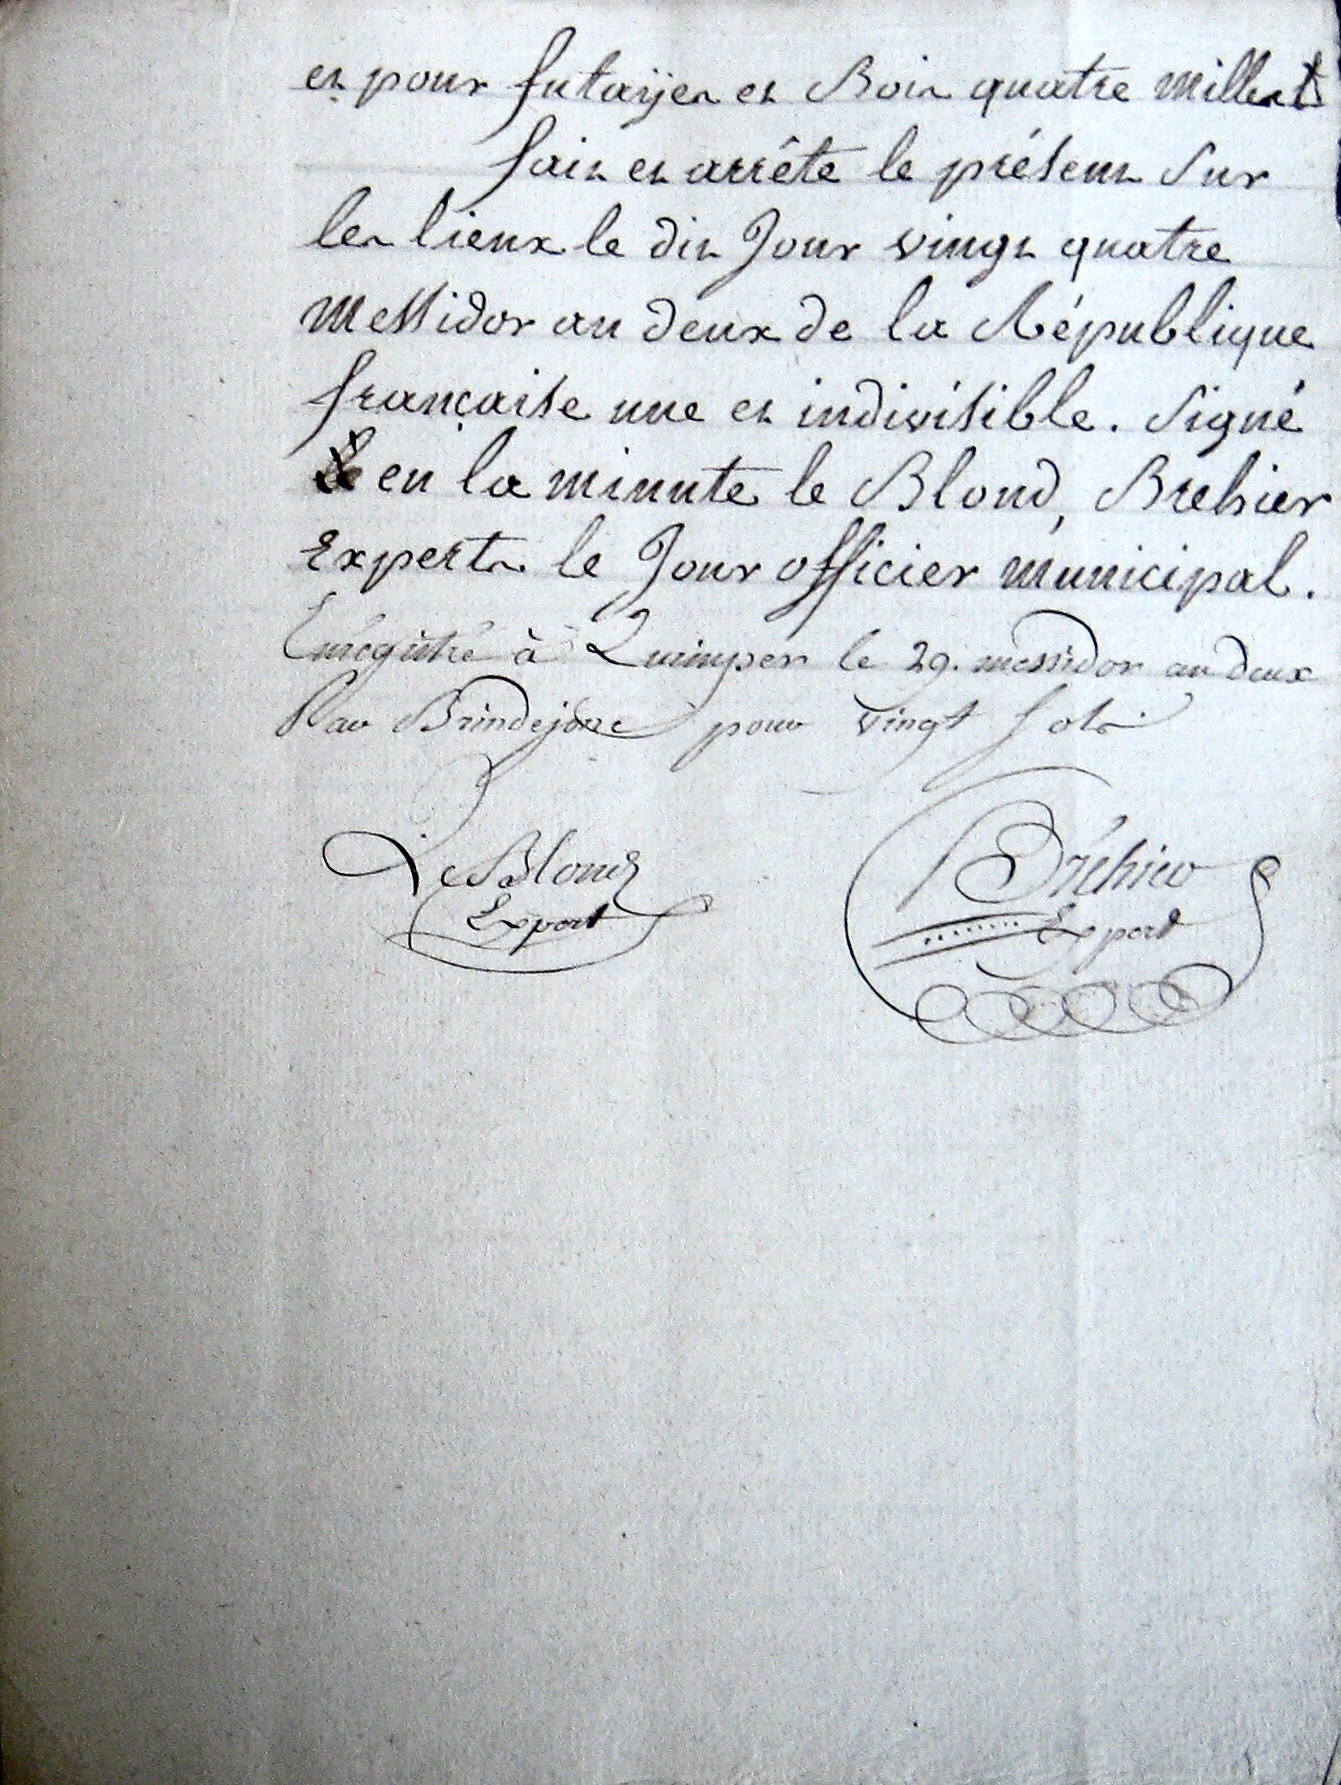 et pour futayes et Bois quatre mille lt
fait et arrête le présent sur
les lieux le dit Jour vingt quatre
Messidor an deux de la République
française une et indivisible. Signé
en la minute le Blond, Brehier
Experts le Jour officier municipal.
Enrégistré à Quimper le 29. messidor an deux
Par Brindejonc pour vingt sols
Le Blond Bréhier
Expert Expert